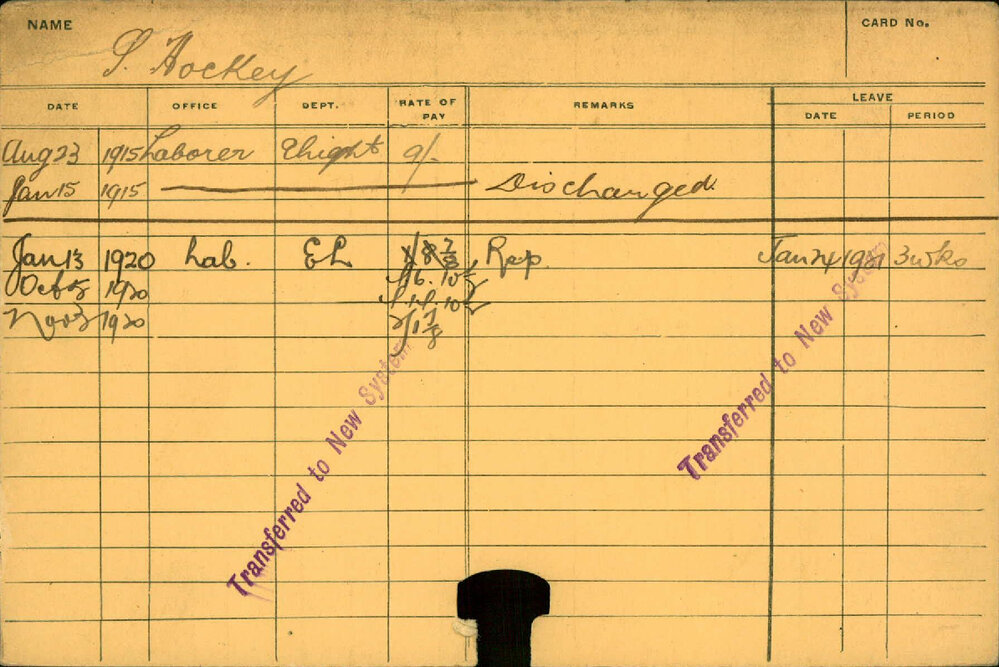 NAME
S. Hockey
CARD No.
DATE OFFICE DEPT. RATE OF PAY REMARKS LEAVE
DATE PERIOD
Aug 23 1915 Laborer 9/-
Jan 15 1915 Discharged.
Jan 13 1920 Lab. EL Rep. Jan 24 1921 3 wks
Oct 1920
Nov 3 1920
Transferred to New System
Transferred to New System